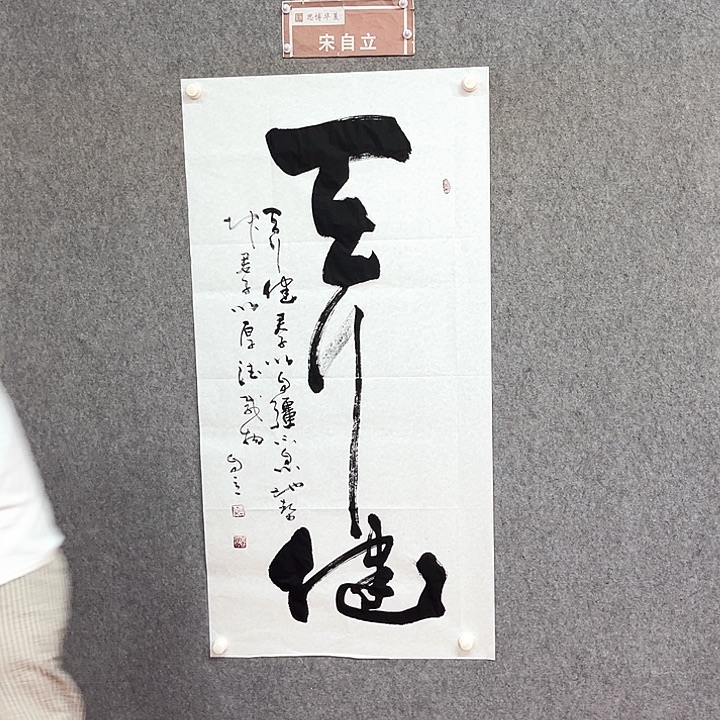 思博华夏
宋自立
天行健
天行健君子以自彊不息地势
坤君子以厚德载物
自立